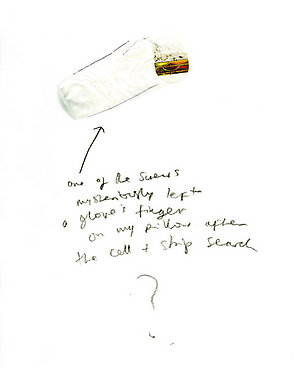 one of the screws
mysteriously left
a glove's finger
on my pillow after
the cell + strip search
?